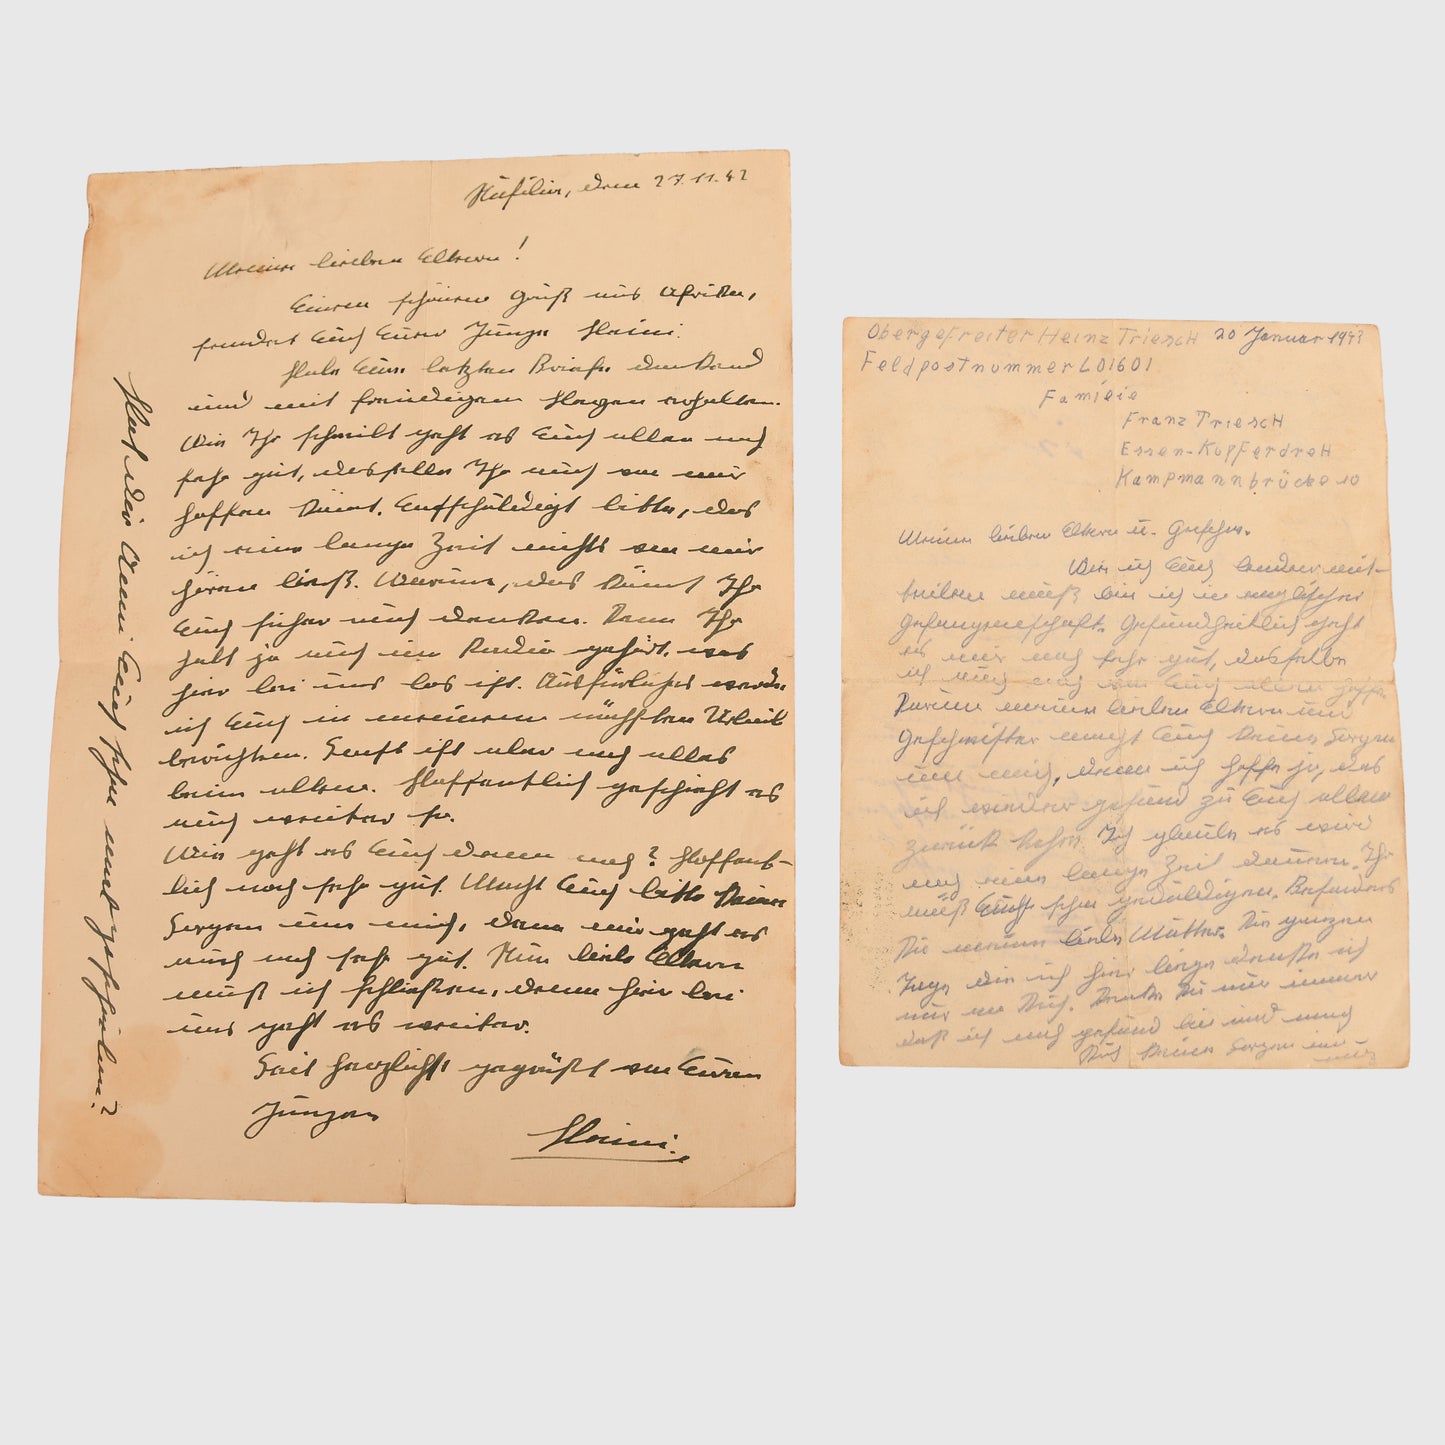 Nufilia, den 27.11.42
Meine lieben Eltern!
Einen schönen Gruß aus Afrika,
sendet Euch Euer Junge Heini.
Habe Eure letzten Briefe dankend
und mit freudigem Herzen erhalten.
Wie Ihr schreibt geht es Euch allen noch
sehr gut, dasselbe Ihr auch von mir
hoffen könnt. Entschuldigt bitte, das
ich eine lange Zeit nichts von mir
hören ließ. Warum, das könnt Ihr
Euch sicher auch denken. Denn Ihr
habt ja auch im Radio gehört, was
hier bei uns los ist. Ausführliches werde
ich Euch in meinem nächsten Urlaub
berichten. Sonst ist aber noch alles
beim alten. Hoffentlich geschieht es
auch weiter so.
Wie geht es Euch denn noch? Hoffent-
lich noch sehr gut. Macht Euch bitte keine
Sorgen um mich, denn mir geht es
auch noch sehr gut. Nun liebe Eltern
muß ich schließen, denn hier bei
uns geht es weiter.
Seit herzlichst gegrüßt von Euren
Jungen
Heini.
Hat der Anni Euch schon mal geschrieben?
Obergefreiter Heinz Triesch 20 Januar 1943
Feldpostnummer L01601
Familie
Franz Triesch
Essen-Kupferdreh
Kampmannbrücke 10
Meine lieben Eltern u. Geschw.
Wie ich Euch leider mit-
teilen muß bin ich in englischer
Gefangenschaft. Gesundheitlich geht
es mir noch sehr gut, dasselbe
ich auch noch von Euch allen hoffe.
Darum meine lieben Eltern und
Geschwister macht Euch keine Sorgen
um mich, denn ich hoffe ja, das
ich wieder gesund zu Euch allen
zurück kehre. Ich glaube es wird
noch eine lange Zeit dauern. Ihr
müß Euch schon geduldigen. Besonders
Du meine liebe Mutter. Die ganzen
Tage die ich hier liege denke ich
nur an Dich. Denke Du nur immer
daß ich noch gesund bin und mach
Dich keine Sorgen um
mich